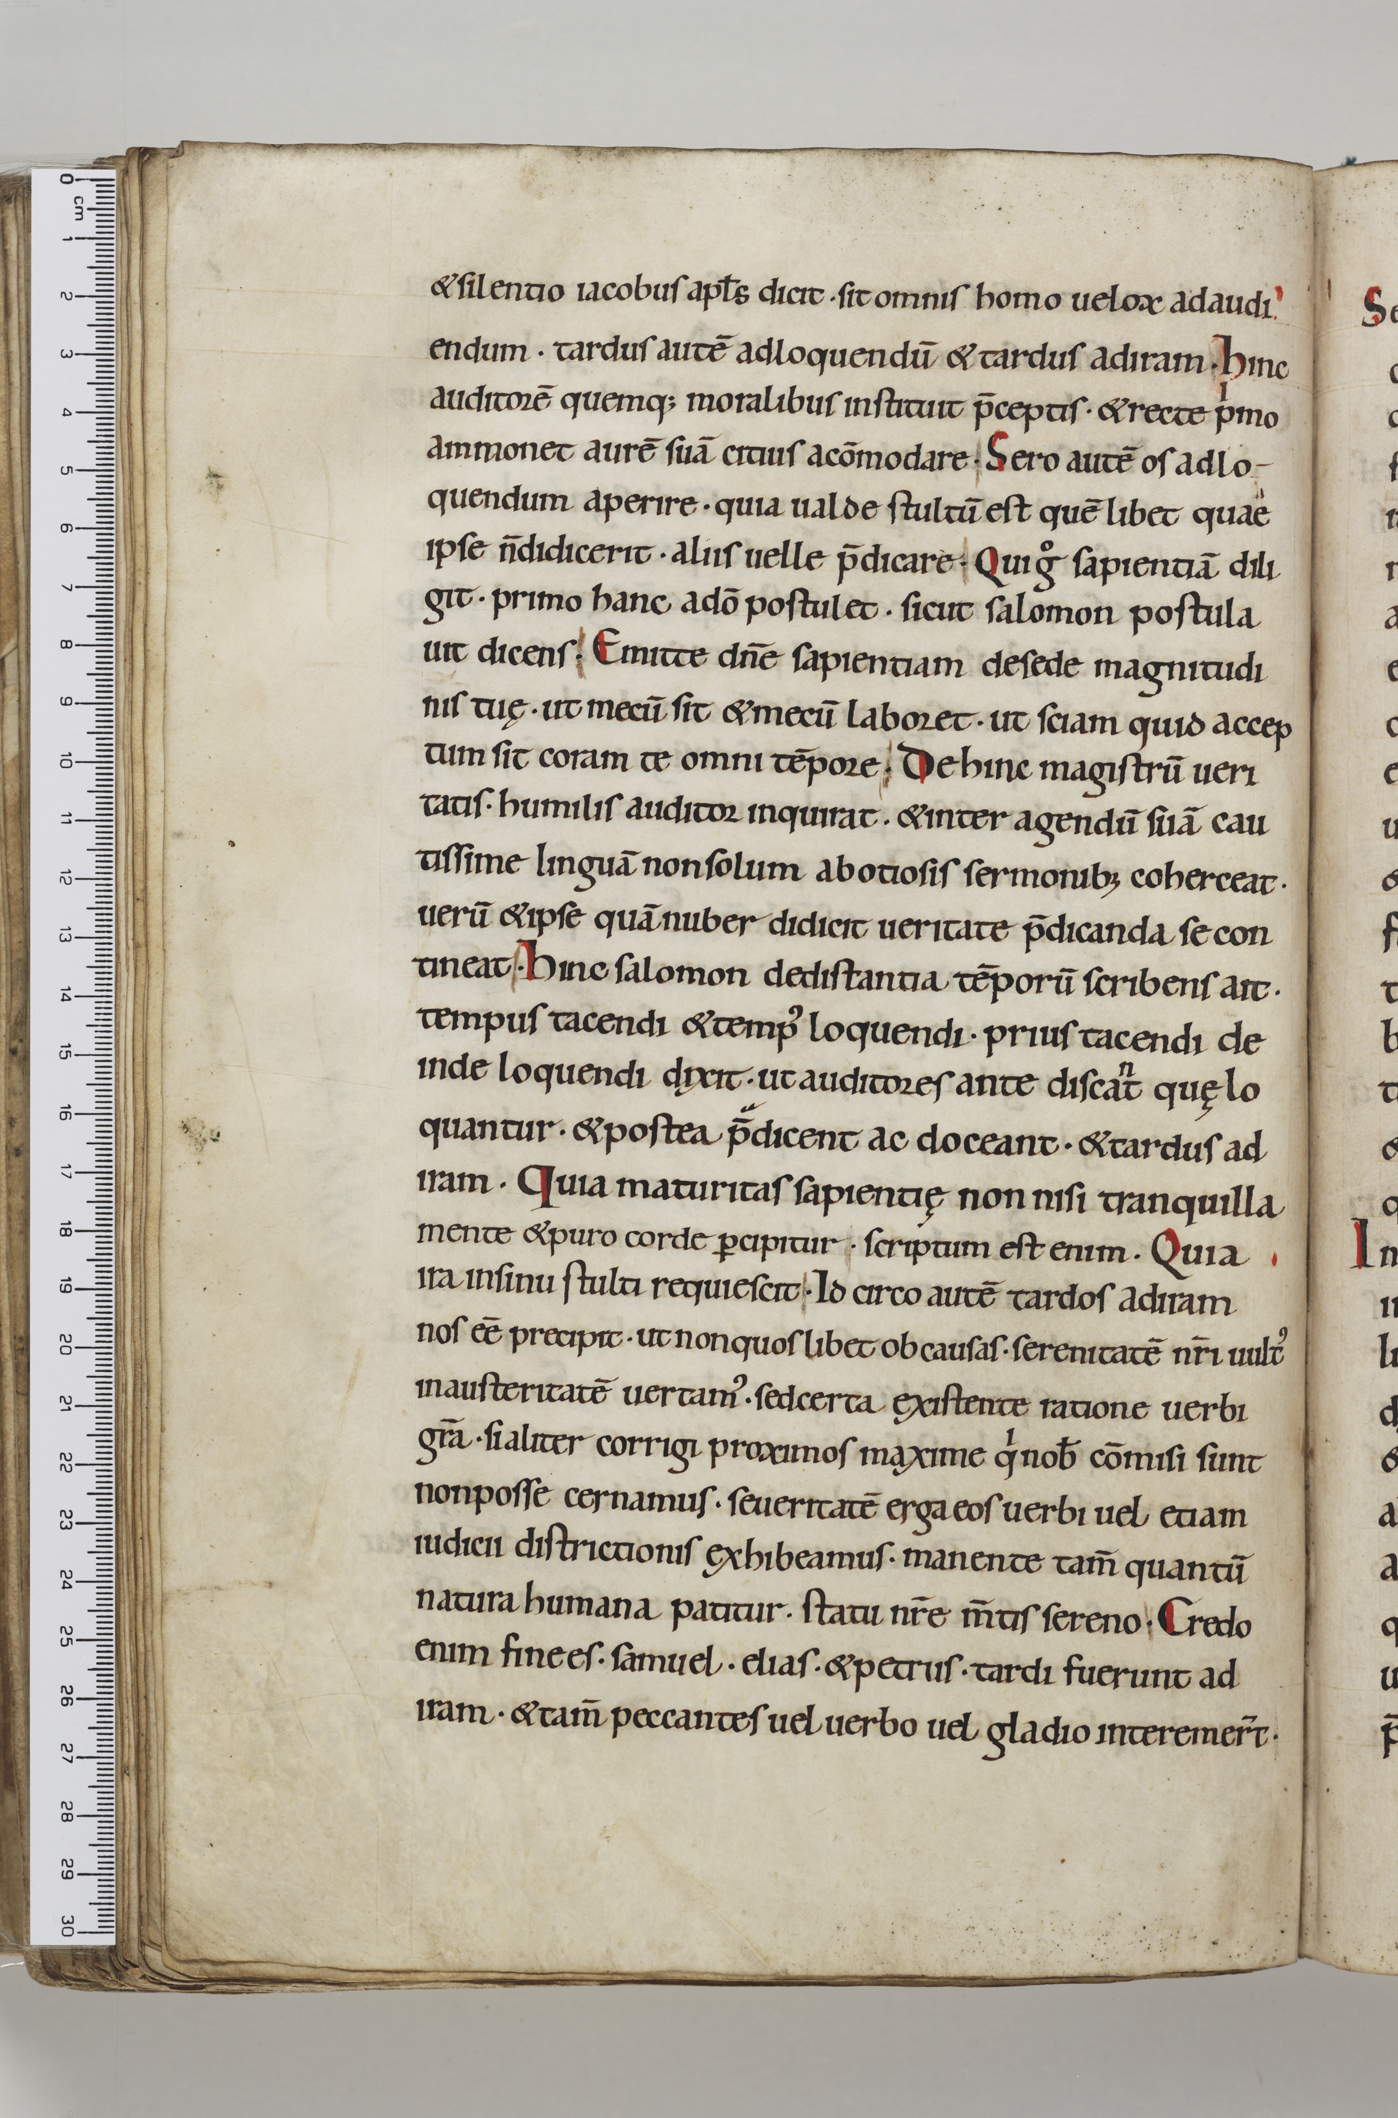 &silentio iacobus apl̄s dicit · sit omnis homo uelox ad audi
endum · tardus autē ad loquendū & tardus ad iram · hinc
auditorē quemq; moralibus instituit p̄ceptis · & recte pͥmo
ammonet aurē suā citius acōmodare · Sero autē os ad lo-
quendum aperire · quia ualde stultū est quē libet quae
ipse n̄ didicerit · aliis uelle p̄dicare · Qui gͦ sapientiā dili
git · primo hanc a dō postulet · sicut salomon postula
uit dicens · Emitte dn̄e sapientiam de sede magnitudi
nis tuę · ut mecū sit & mecū laboret · ut sciam quid accep
tum sit coram te omni tēpore · De hinc magistrū ueri
tatis · humilis auditor inquirat · & inter agendū suā cau
tissime linguā non solum ab otiosis sermonib; coherceat ·
uerū & ipse quā nuber didicit ueritate p̄dicanda se con
tineat · hinc salomon de distantia tēporū scribens ait ·
tempus tacendi & temp᾽ loquendi · prius tacendi de
inde loquendi dixit · ut auditores ante discaⁿt quę lo
quantur · & postea p̄dicent ac doceant · & tardus ad
iram · Quia maturitas sapientię non nisi tranquilla
mente & puro corde ꝑcipitur · scriptum est enim · Quia
ira in sinu stulti requiescit · Id circo autē tardos ad iram
nos eē precipit · ut non quos libet ob causas · serenitatē nr̄i uult᾽
in austeritatē uertam᾽ · sed certa ęxistente ratione uerbi
gr̄a · si aliter corrigi proximos maxime qͥ nob̄ cōmisi sunt
non posse cernamus · seueritatē erga eos uerbi uel etiam
iudicii districtionis ęxhibeamus · manente tam̄ quantū
natura humana patitur · statu nr̄e m̄tis sereno · Credo
enim finees · samuel · elias · & petrus · tardi fuerunt ad
iram · & tam̄ peccantes uel uerbo uel gladio interemer̄t ·